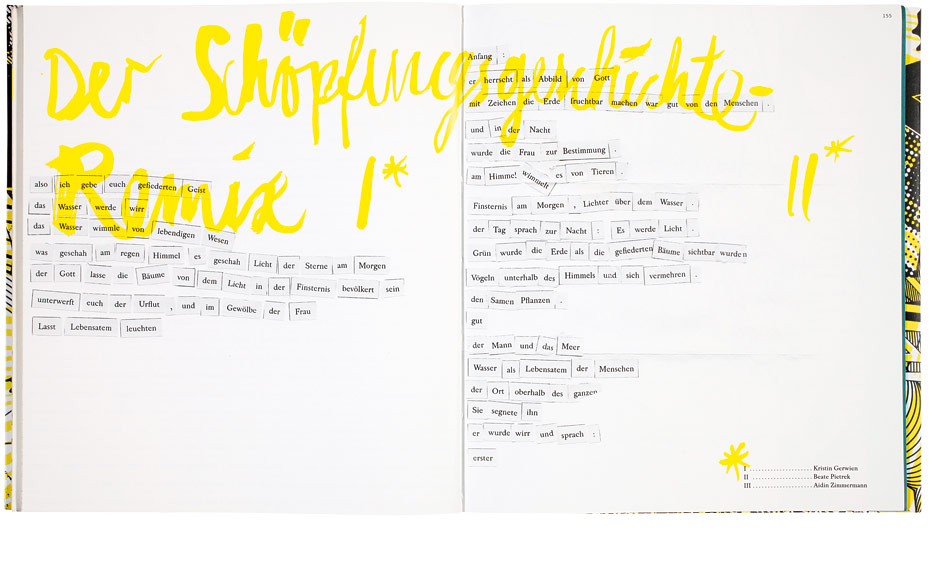 Der Schöpfungsgeschichte-
Remix I*
also ich gebe euch gefiederten Geist
das Wasser werde wirr
das Wasser wimmle von lebendigen Wesen
was geschah am regen Himmel es geschah Licht der Sterne am Morgen
der Gott lasse die Bäume von dem Licht in der Finsternis bevölkert sein
unterwerft euch der Urflut , und im Gewölbe der Frau
Lasst Lebensatem leuchten
155
II*
Anfang :
er herrscht als Abbild von Gott
mit Zeichen die Erde fruchtbar machen war gut von den Menschen .
und in der Nacht
wurde die Frau zur Bestimmung .
am Himmel wimmelt es von Tieren .
Finsternis am Morgen , Lichter über dem Wasser .
der Tag sprach zur Nacht : Es werde Licht .
Grün wurde die Erde als die gefiederten Bäume sichtbar wurden
Vögeln unterhalb des Himmels und sich vermehren .
den Samen Pflanzen .
gut
der Mann und das Meer
Wasser als Lebensatem der Menschen
der Ort oberhalb des ganzen
Sie segnete ihn
er wurde wirr und sprach :
erster
*
I .................... Kristin Gerwien
II .................... Beate Pietrek
III .................... Aidin Zimmermann